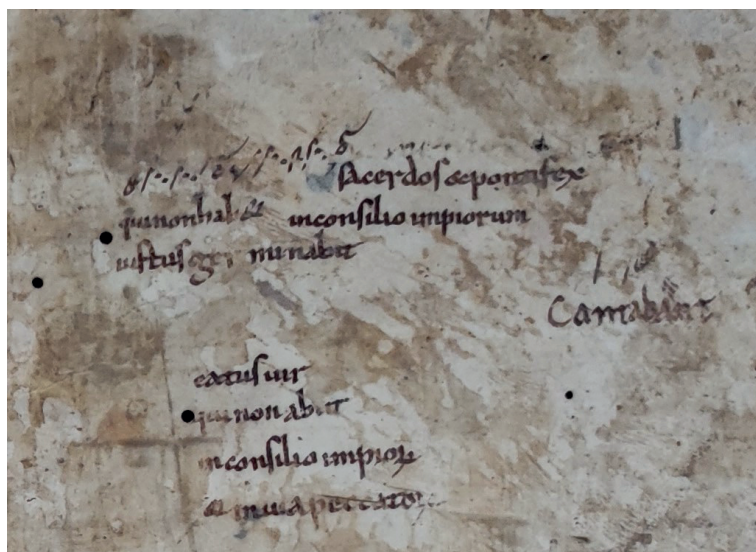 sacerdos & pontifex
qui non hab& in consilio impiorum
iustus ger minabit
Cantabant
eatus uir
qui non abiit
in consilio impior
& in uia peccator